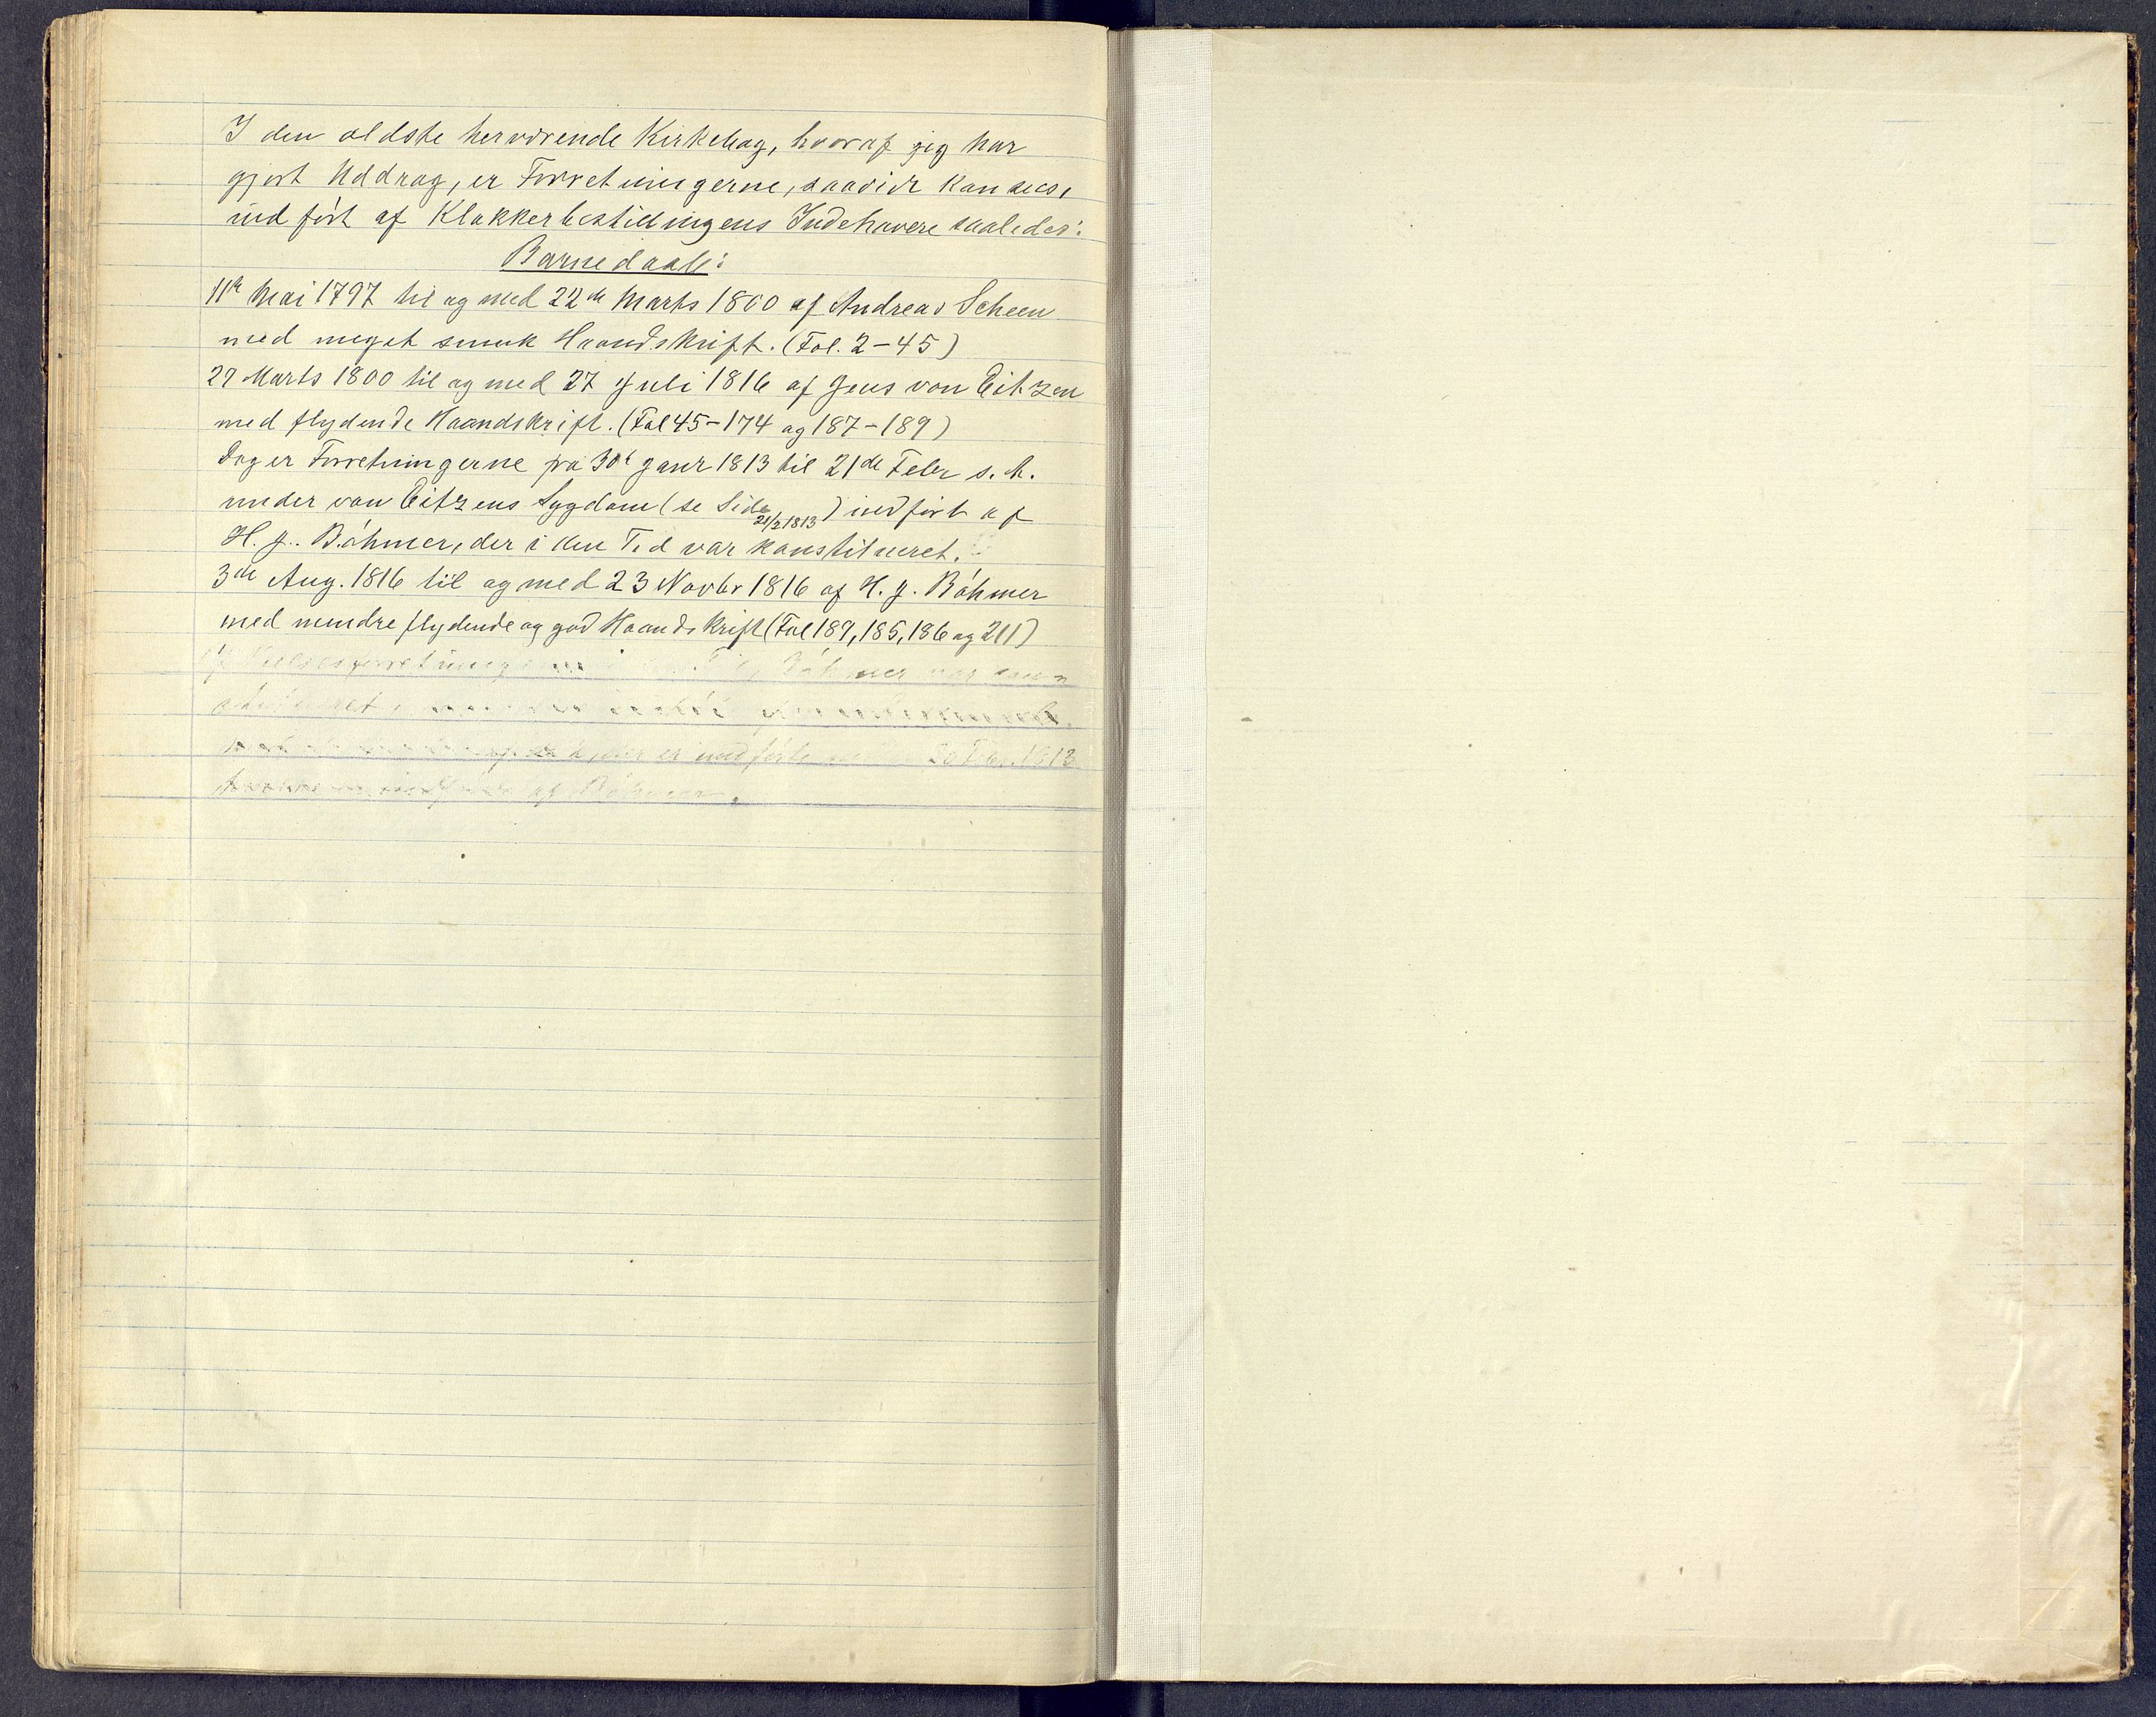 I den ældste herværende Kirkebog, hvoraf jeg har
gjort Uddrag, er Forretningerne, saavidt kan sees,
indført af Klokkerbestillingens Indehavere saaledes:
Barnedaab:
11te Mai 1797 til og med 22de Marts 1800 af Andreas Scheen
med meget smuk Haandskrift. (Fol. 2-45)
29 Marts 1800 til og med 27 Juli 1816 af Jens von Eitzen
med flydende Haandskrift. (Fol 45-174 og 187-189)
Dog er Forretningerne fra 30te Januar 1813 til 21de Febr s. A.
under von Eitzens Sygdom (se Side 21/2 1813) indført af
H. J. Böhmer, der i den Tid var konstitueret.
3die Aug. 1816 til og med 23 Novbr 1816 af H. J. Böhmer
med mindre flydende og god Haandskrift (Fol 189, 185, 186 og 211)
Böhmer var
er indført 1813
af Böhmer.